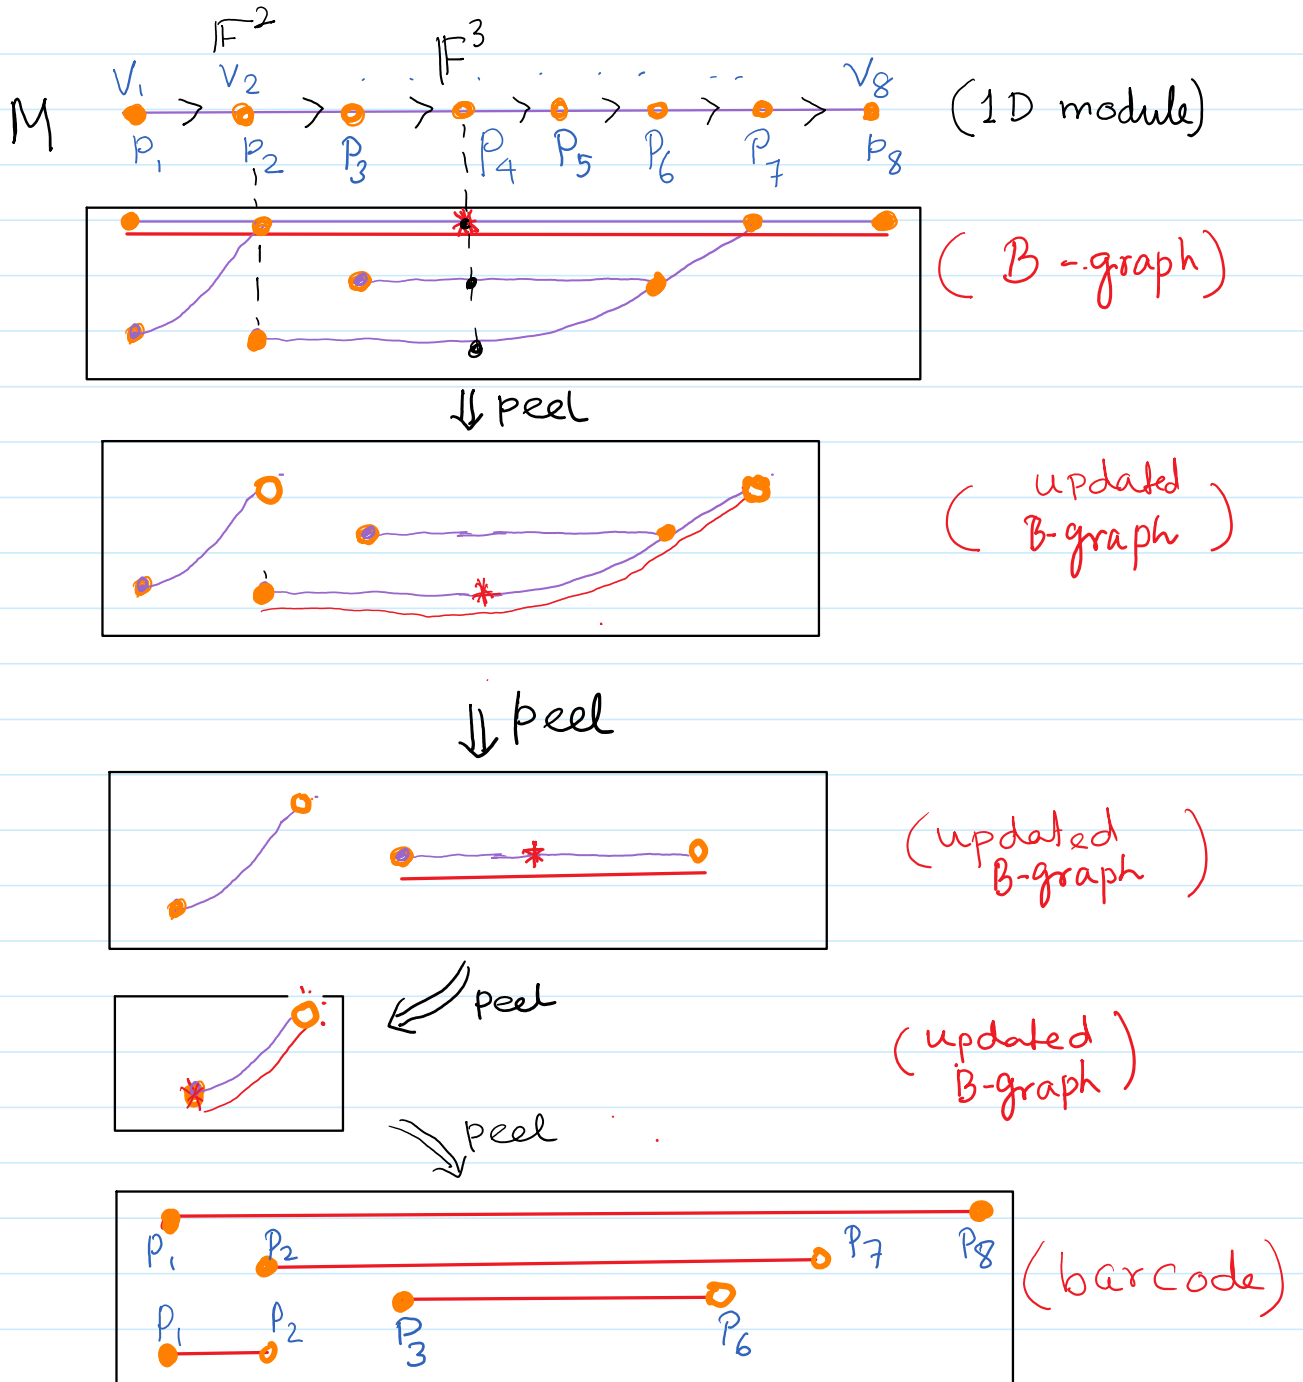 𝔽² 𝔽³
V₁ V₂ . . . . . . . V₈
M (1D module)
P₁ P₂ P₃ P₄ P₅ P₆ P₇ P₈
(B-graph)
⇓ peel
(updated
B-graph)
⇓ peel
(updated
B-graph)
peel
(updated
B-graph)
peel
P₁ P₂ P₇ P₈
(barcode)
P₁ P₂ P₃ P₆